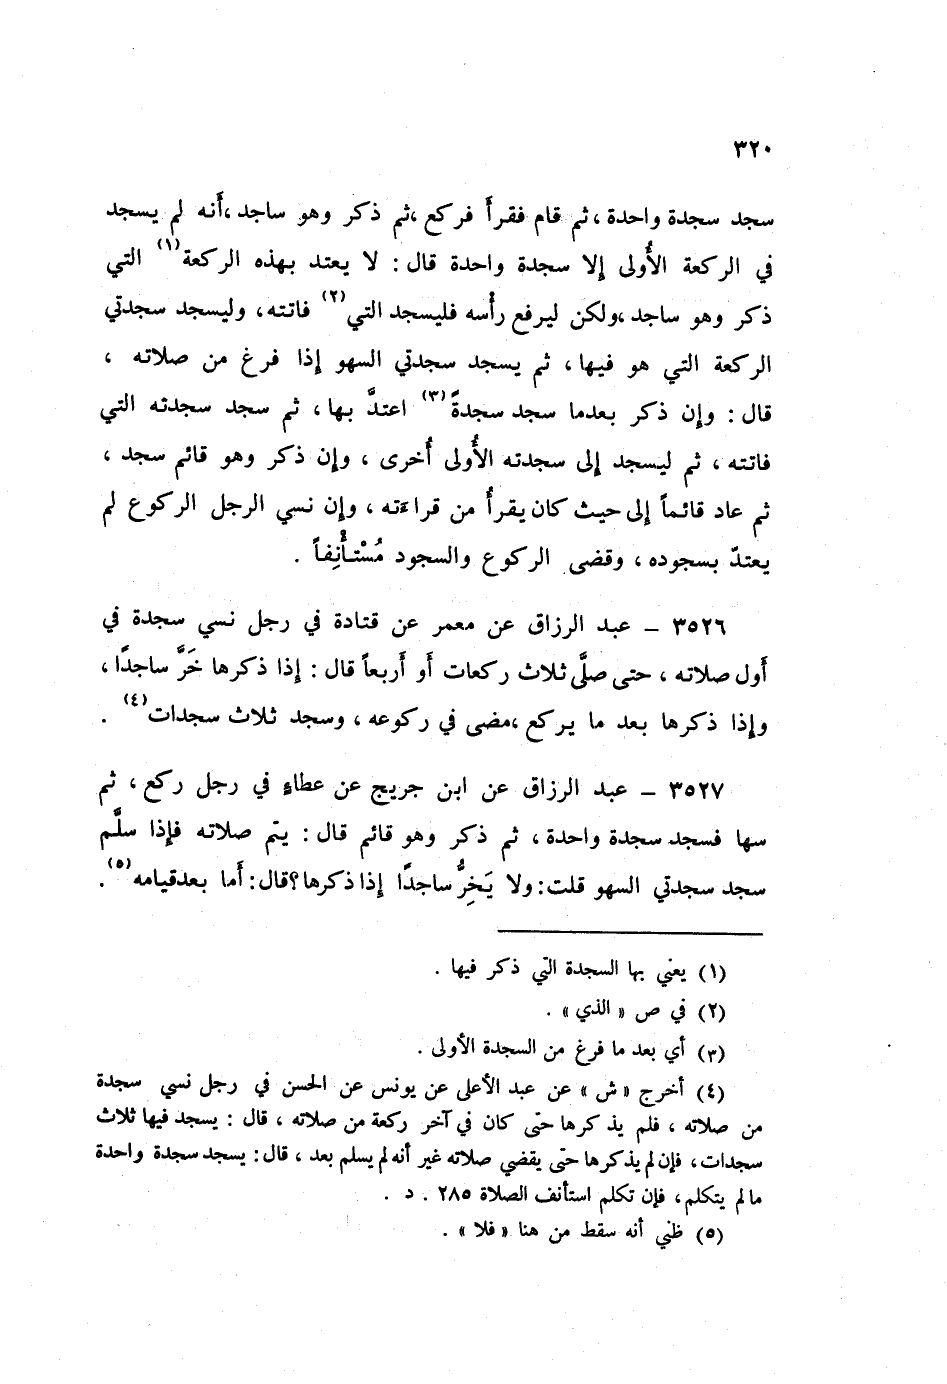 ٣٢٠
سجد سجدة واحدة ، ثم قام فقرأ فركع ،ثم ذكر وهو ساجد ،أنه لم يسجد
في الركعة الأُولى إلا سجدة واحدة قال : لا يعتد بهذه الركعة(١) التي
ذكر وهو ساجد ،ولكن ليرفع رأسه فليسجد التي(٢) فاتته ، وليسجد سجدتي
الركعة التي هو فيها ، ثم يسجد سجدتي السهو إذا فرغ من صلاته ،
قال : وإن ذكر بعدما سجد سجدةً(٣) اعتدَّ بها ، ثم سجد سجدته التي
فاتته ، ثم ليسجد إلى سجدته الأُولى أُخرى ، وإن ذكر وهو قائم سجد ،
ثم عاد قائماً إلى حيث كان يقرأُ من قراءته ، وإن نسي الرجل الركوع لم
يعتدّ بسجوده ، وقضى الركوع والسجود مُسْتأْنِفاً .
٣٥٢٦ – عبد الرزاق عن معمر عن قتادة في رجل نسي سجدة في
أَول صلاته ، حتى صلَّى ثلاث ركعات أَو أَربعاً قال : إذا ذكرها خَرَّ ساجدًا ،
وإذا ذكرها بعد ما يركع ،مضى في ركوعه ، وسجد ثلاث سجدات(٤) .
٣٥٢٧ – عبد الرزاق عن ابن جريج عن عطاءٍ في رجل ركع ، ثم
سها فسجد سجدة واحدة ، ثم ذكر وهو قائم قال : يتم صلاته فإذا سلَّم
سجد سجدتي السهو قلت : ولا يَخِرُّ ساجدًا إذا ذكرها؟قال : أَما بعدقيامه(٥) .
(١) يعني بها السجدة التي ذكر فيها .
(٢) في ص « الذي » .
(٣) أي بعد ما فرغ من السجدة الأولى .
(٤) أخرج « ش » عن عبد الأعلى عن يونس عن الحسن في رجل نسي سجدة
من صلاته ، فلم يذكرها حتى كان في آخر ركعة من صلاته ، قال : يسجد فيها ثلاث
سجدات ، فإن لم يذكرها حتى يقضي صلاته غير أنه لم يسلم بعد ، قال : يسجد سجدة واحدة
ما لم يتكلم ، فإن تكلم استأنف الصلاة ٢٨٥ . د .
(٥) ظني أنه سقط من هنا « فلا » .